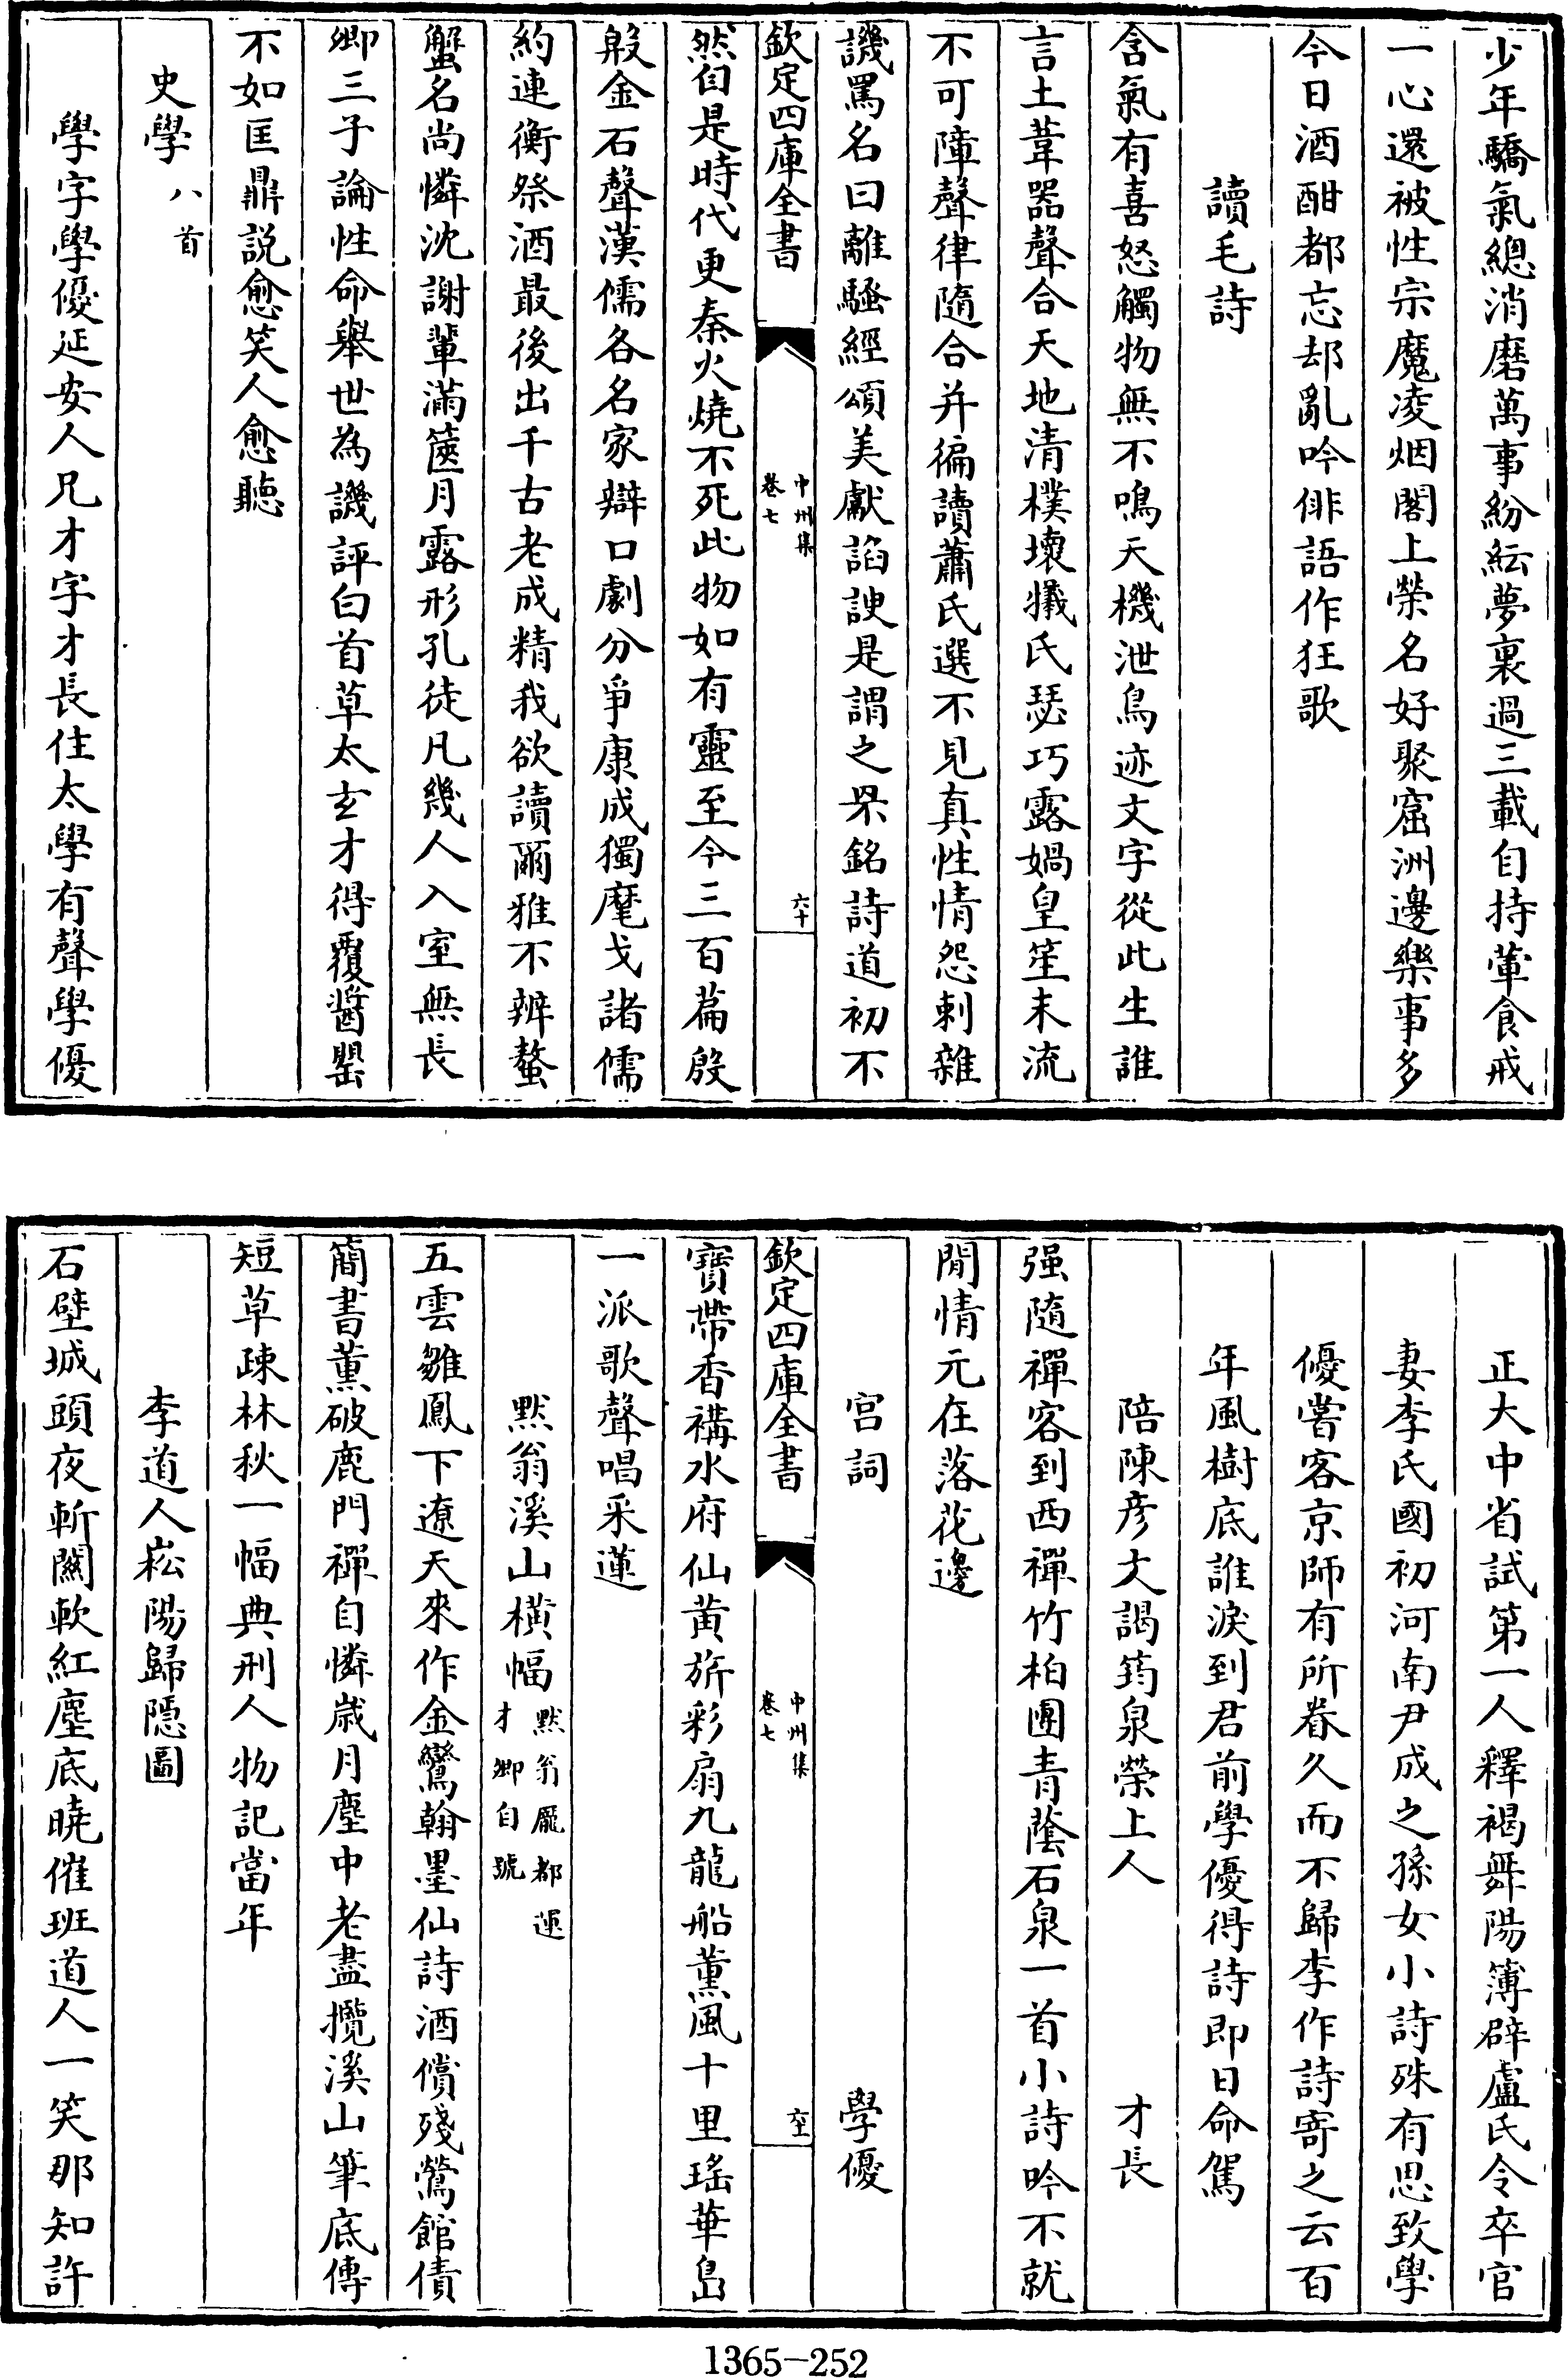 少年驕氣總消磨萬事紛紜夢裏過三載自持葷食戒
一心還被性宗魔凌烟閣上榮名好聚窟洲邊樂事多
今日酒酣都忘却亂吟俳語作狂歌
讀毛詩
含氣有喜怒觸物無不鳴天機泄鳥迹文字從此生誰
言土葦器聲合天地清樸壞犧氏瑟巧露媧皇笙末流
不可障聲律隨合并徧讀蕭氏選不見真性情怨刺雜
譏罵名曰離騷經頌美獻諂諛是謂之罘銘詩道初不
欽定四庫全書
中州集
卷七
六十
然自是時代更秦火燒不死此物如有靈至今三百篇殷
殷金石聲漢儒各名家辯口劇分爭康成獨麾戈諸儒
約連衡祭酒最後出千古老成精我欲讀爾雅不辨螯
蟹名尚憐沈謝輩滿篋月露形孔徒凡幾人入室無長
卿三子論性命舉世為譏評白首草太玄才得覆醬罌
不如匡鼎説愈笑人愈聽
史學八首
學字學優延安人兄才字才長住太學有聲學優
正大中省試第一人釋褐舞陽簿辟盧氏令卒官
妻李氏國初河南尹成之孫女小詩殊有思致學
優嘗客京師有所眷久而不歸李作詩寄之云百
年風樹底誰淚到君前學優得詩即日命駕
陪陳彦文謁筠泉榮上人 才長
强隨禪客到西禪竹柏團青蔭石泉一首小詩吟不就
閒情元在落花邊
宫詞 學優
欽定四庫全書
中州集
卷七
六十一
寶帶香褠水府仙黄旂彩扇九龍船薫風十里瑤華島
一派歌聲唱采蓮
黙翁溪山橫幅黙翁龎都運才卿自號
五雲雛鳳下遼天來作金鸞翰墨仙詩酒償殘鶯館債
簡書薫破鹿門禪自憐歲月塵中老盡攬溪山筆底傳
短草疎林秋一幅典刑人物記當年
李道人崧陽歸隱圖
石壁城頭夜斬關軟紅塵底曉催班道人一笑那知許
1365-252